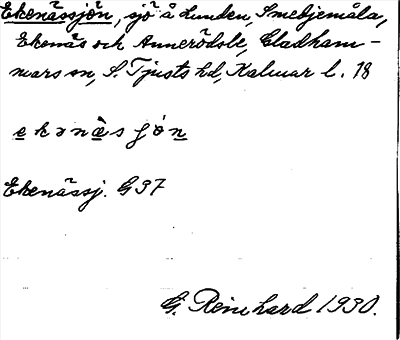 Ekenässjön, sjö å Lunden, Smedjemåla,
Ekenäs och Annerödsle, Gladham-
mars sn, S. Tjusts hd, Kalmar l. 18
ekənäsjön
Ekenässj. G37
G. Reinhard 1930.